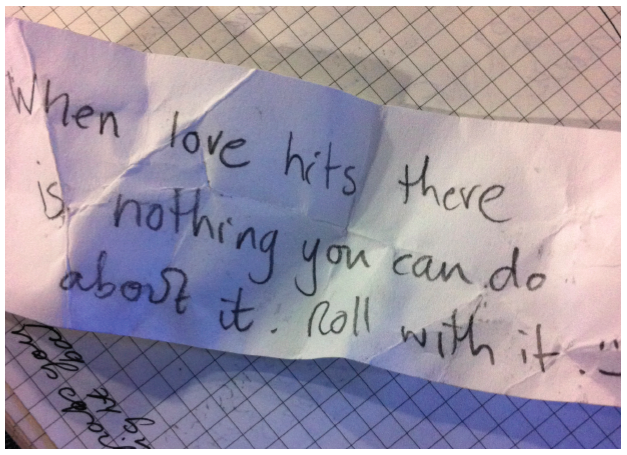 When love hits there
is nothing you can do
about it. Roll with it. :)